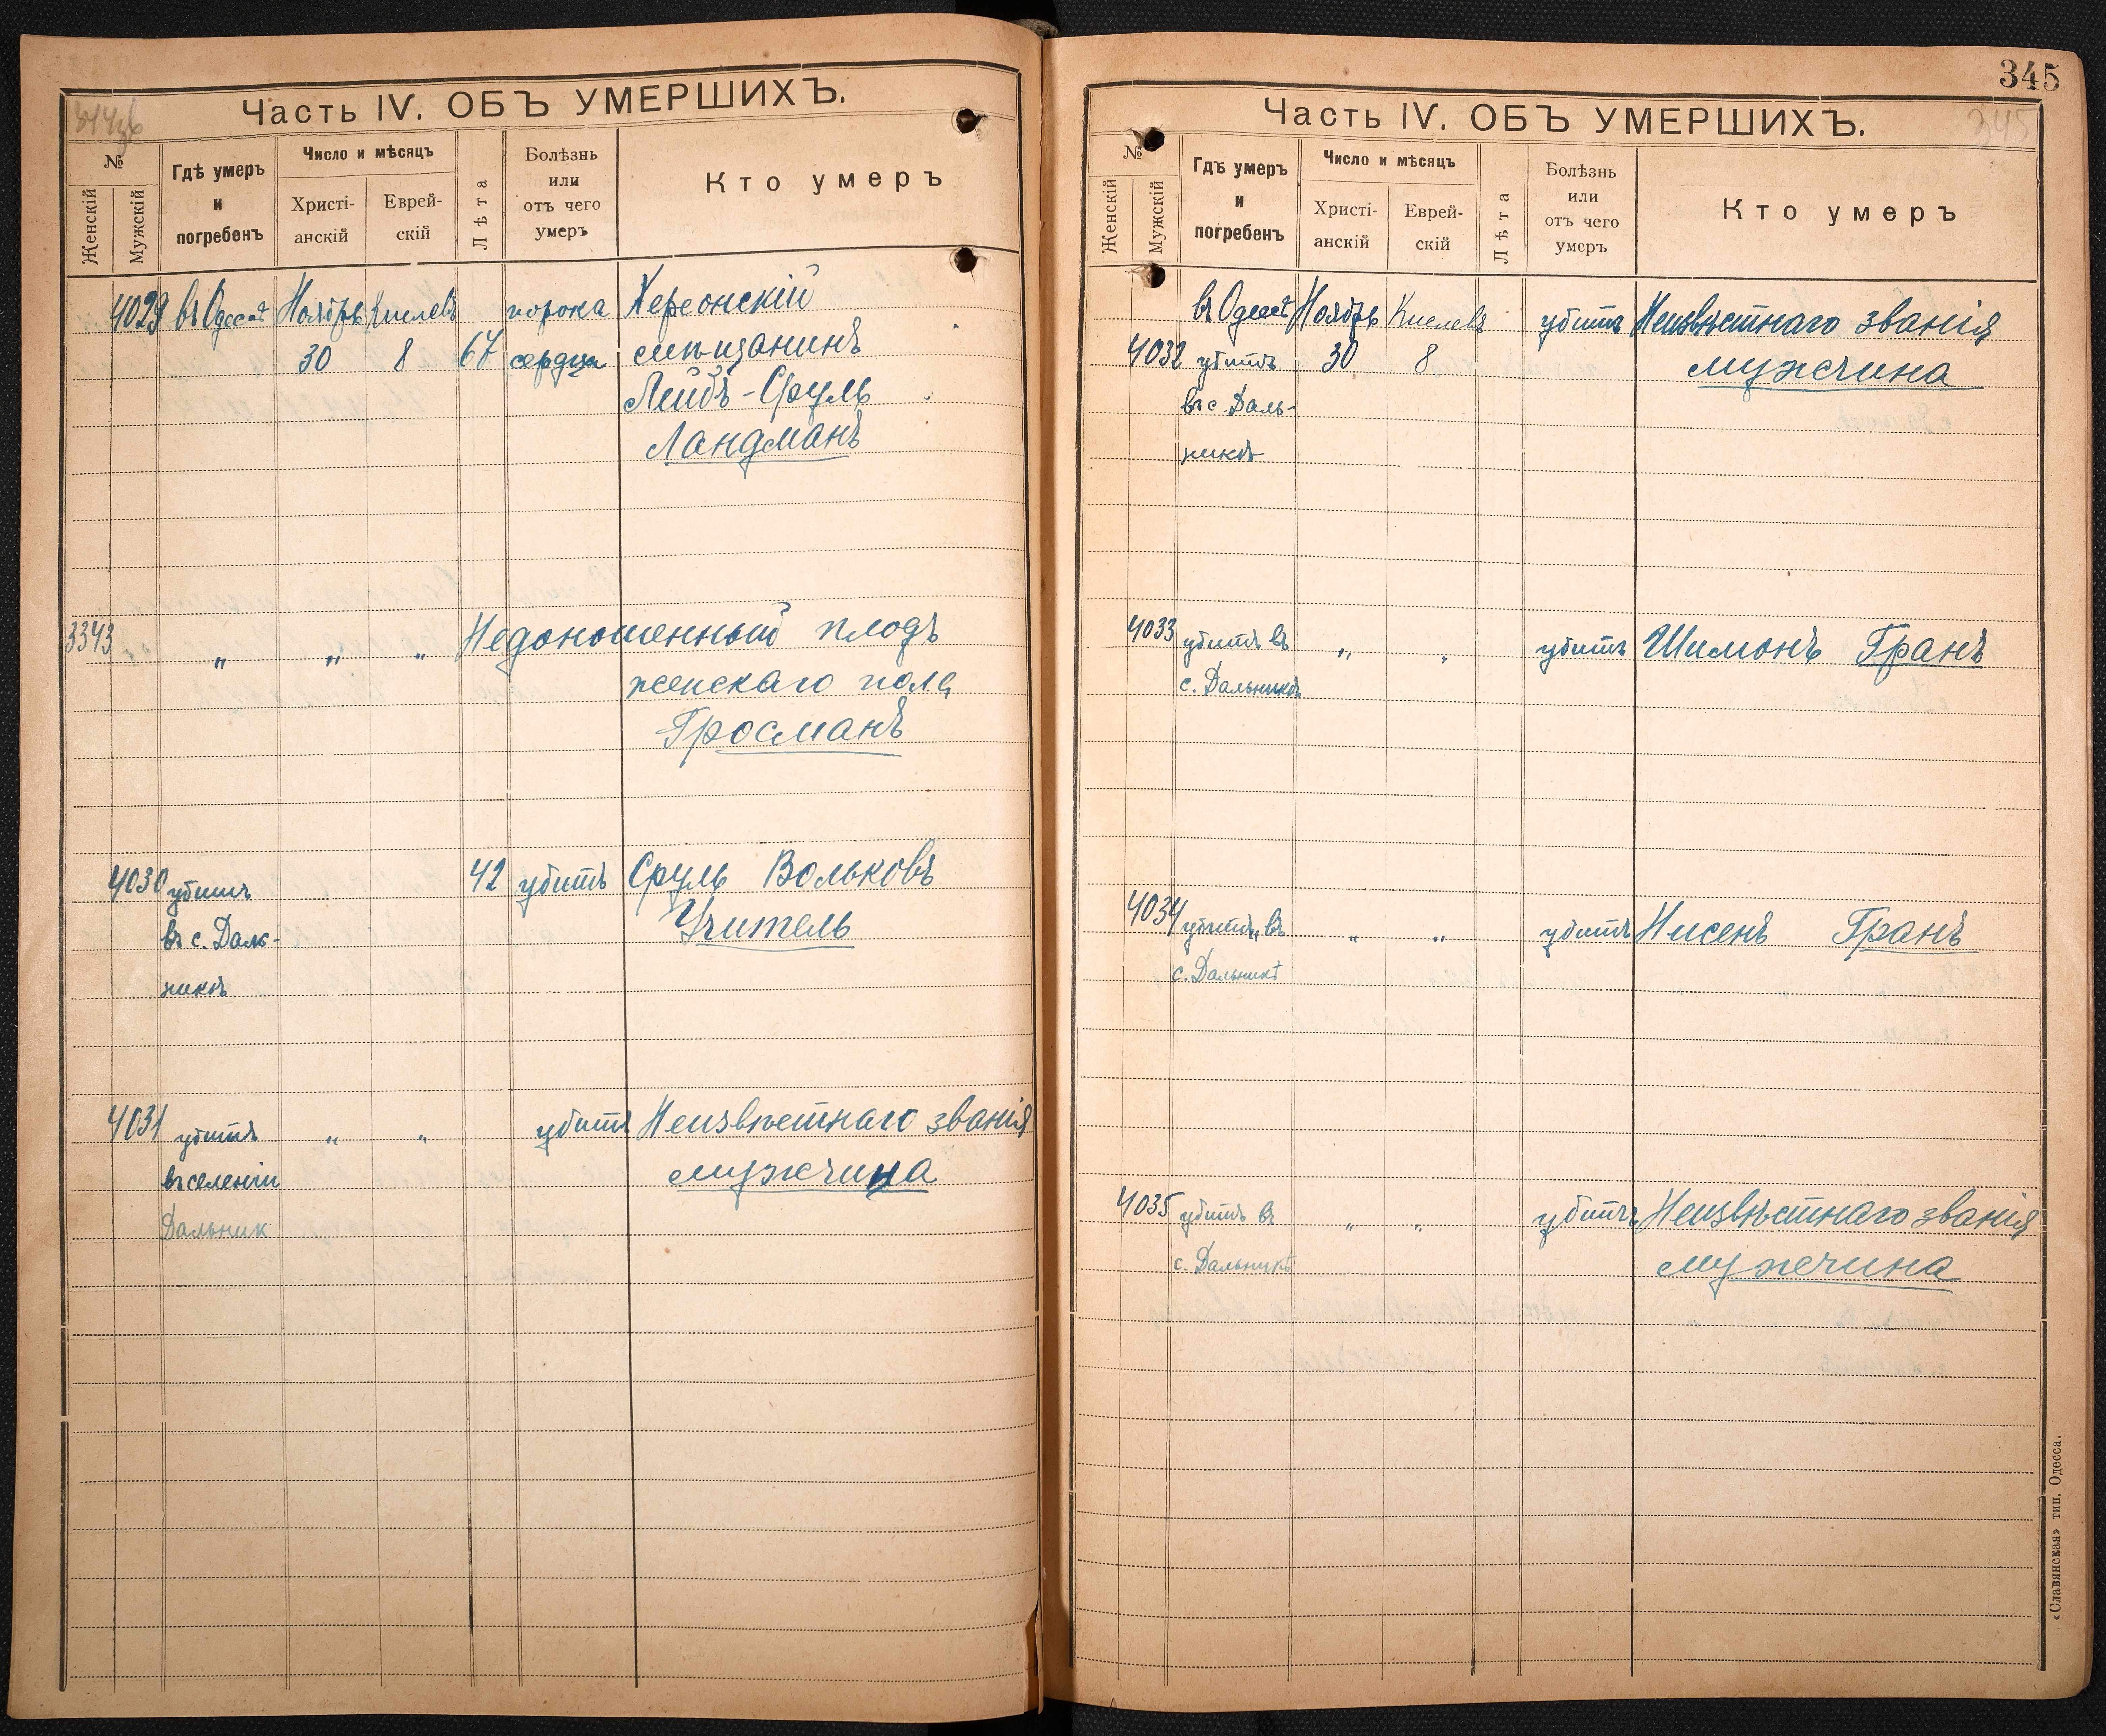 344об
Часть IV. ОБЪ УМЕРШИХЪ.
№
Женскій
Мужскій
Гдѣ умеръ
и
погребенъ
Число и мѣсяцъ
Христі-
анскій
Еврей-
скій
Лѣта
Болѣзнь
или
отъ чего
умеръ
Кто умеръ
4029 въ Одессѣ Ноябрь Кислевъ порока Херсонскій
30 8 67 сердца мѣщанинъ
Лейбъ-Сруль
Ландманъ
3343 " " " Недоношенный плодъ
женскаго пола
Гросманъ
4030 убитъ 42 убитъ Сруль Вольковъ
въ с. Даль- Учитель
никѣ
4031 убитъ " " убитъ Неизвѣстнаго званія
въ селеніи мужчина
Дальник
345
345
Часть IV. ОБЪ УМЕРШИХЪ.
№
Женскій
Мужскій
Гдѣ умеръ
и
погребенъ
Число и мѣсяцъ
Христі-
анскій
Еврей-
скій
Лѣта
Болѣзнь
или
отъ чего
умеръ
Кто умеръ
въ Одессѣ Ноябрь Кислевъ убитъ Неизвѣстнаго званія
4032 убитъ 30 8 мужчина
въ с. Даль-
никѣ
4033 убитъ въ " " убитъ Шимонъ Гранъ
с. Дальникѣ
4034 убитъ въ " " убитъ Нисенъ Гранъ
с. Дальникѣ
4035 убитъ въ " " убитъ Неизвѣстнаго званія
с. Дальникѣ мужчина
«Славянская» тип. Одесса.